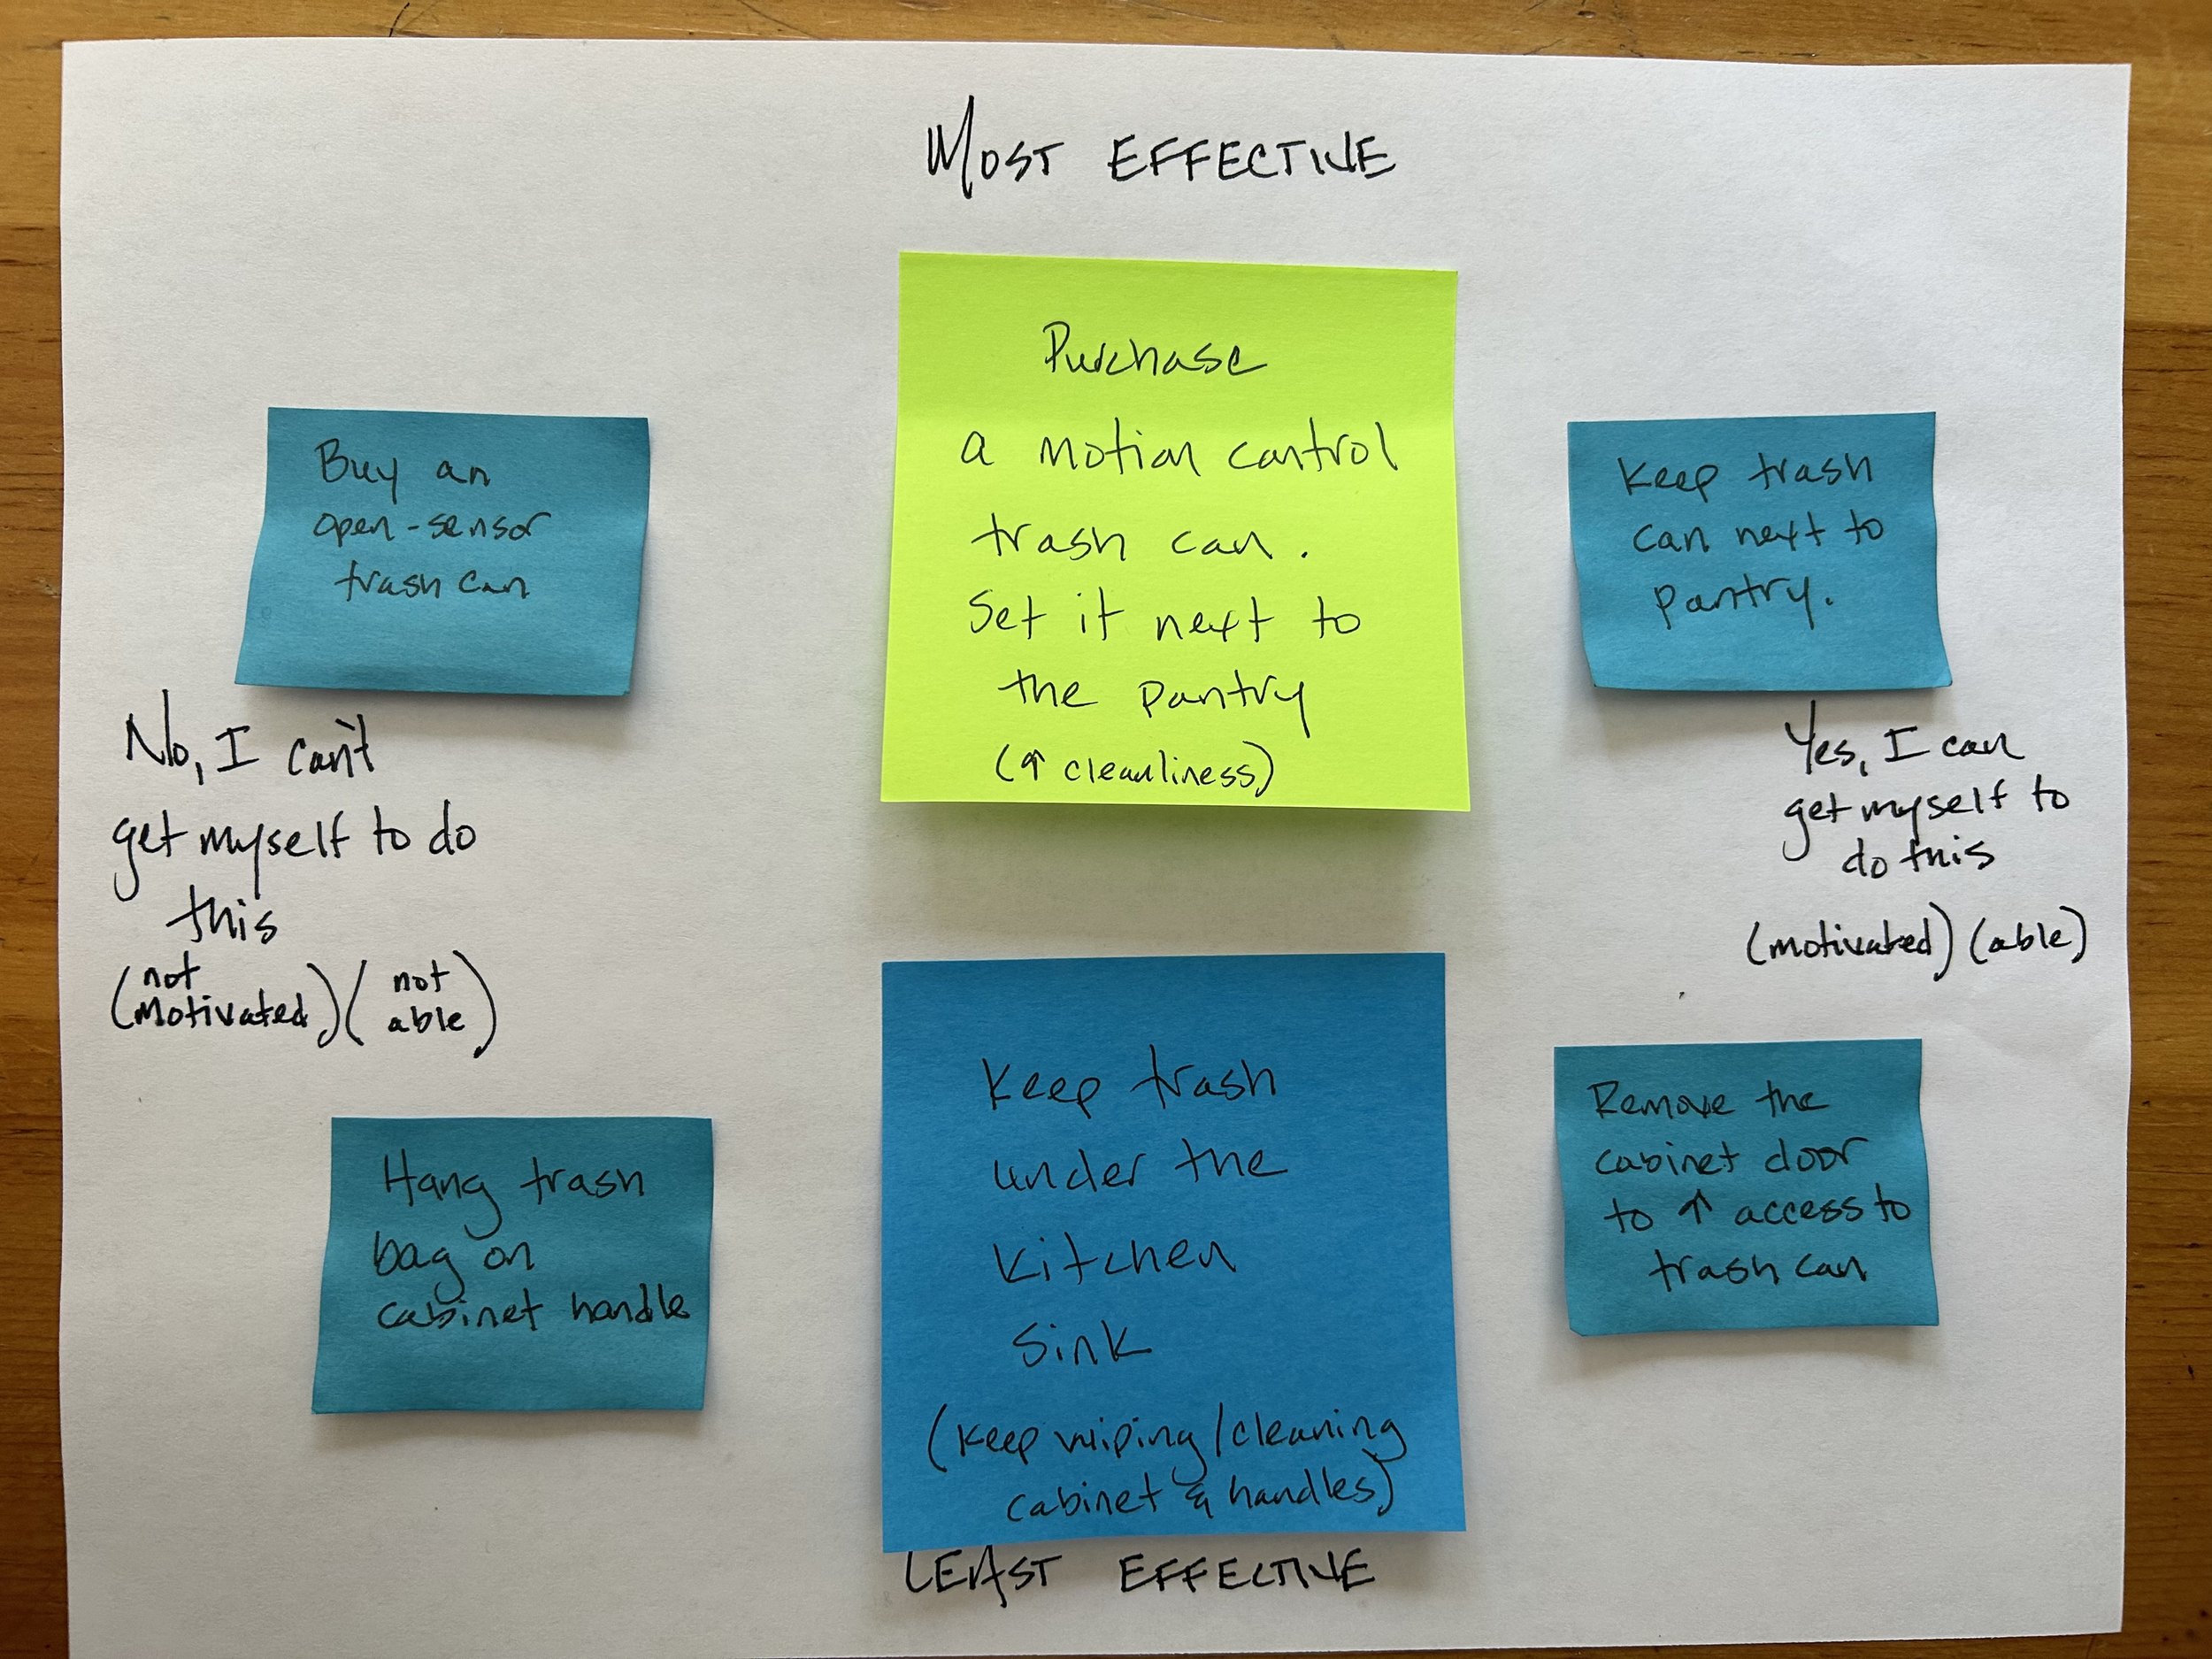 MOST EFFECTIVE
Purchase
a motion control
trash can.
Set it next to
the pantry
(↑ cleanliness)
Buy an
open-sensor
trash can
Keep trash
can next to
pantry.
No, I can't
get myself to do
this
(not motivated) (not able)
Yes, I can
get myself to
do this
(motivated) (able)
Hang trash
bag on
cabinet handle
Keep trash
under the
kitchen
sink
(keep wiping/cleaning
cabinet & handles)
Remove the
cabinet door
to ↑ access to
trash can
LEAST EFFECTIVE